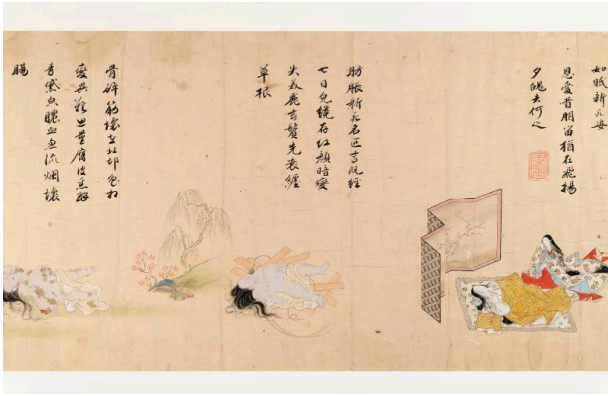 如眠新死姿
恩愛昔朋留猶在飛揚
夕魄去何之
肪脹新死名叵言既經
七日皃纔存紅顔暗變
失花麗玄鬢先衰纏
草根
骨碎筋壞在北邙色相
變異難思量腐皮悉解
青黛皃膿血忽流爛壞
腸